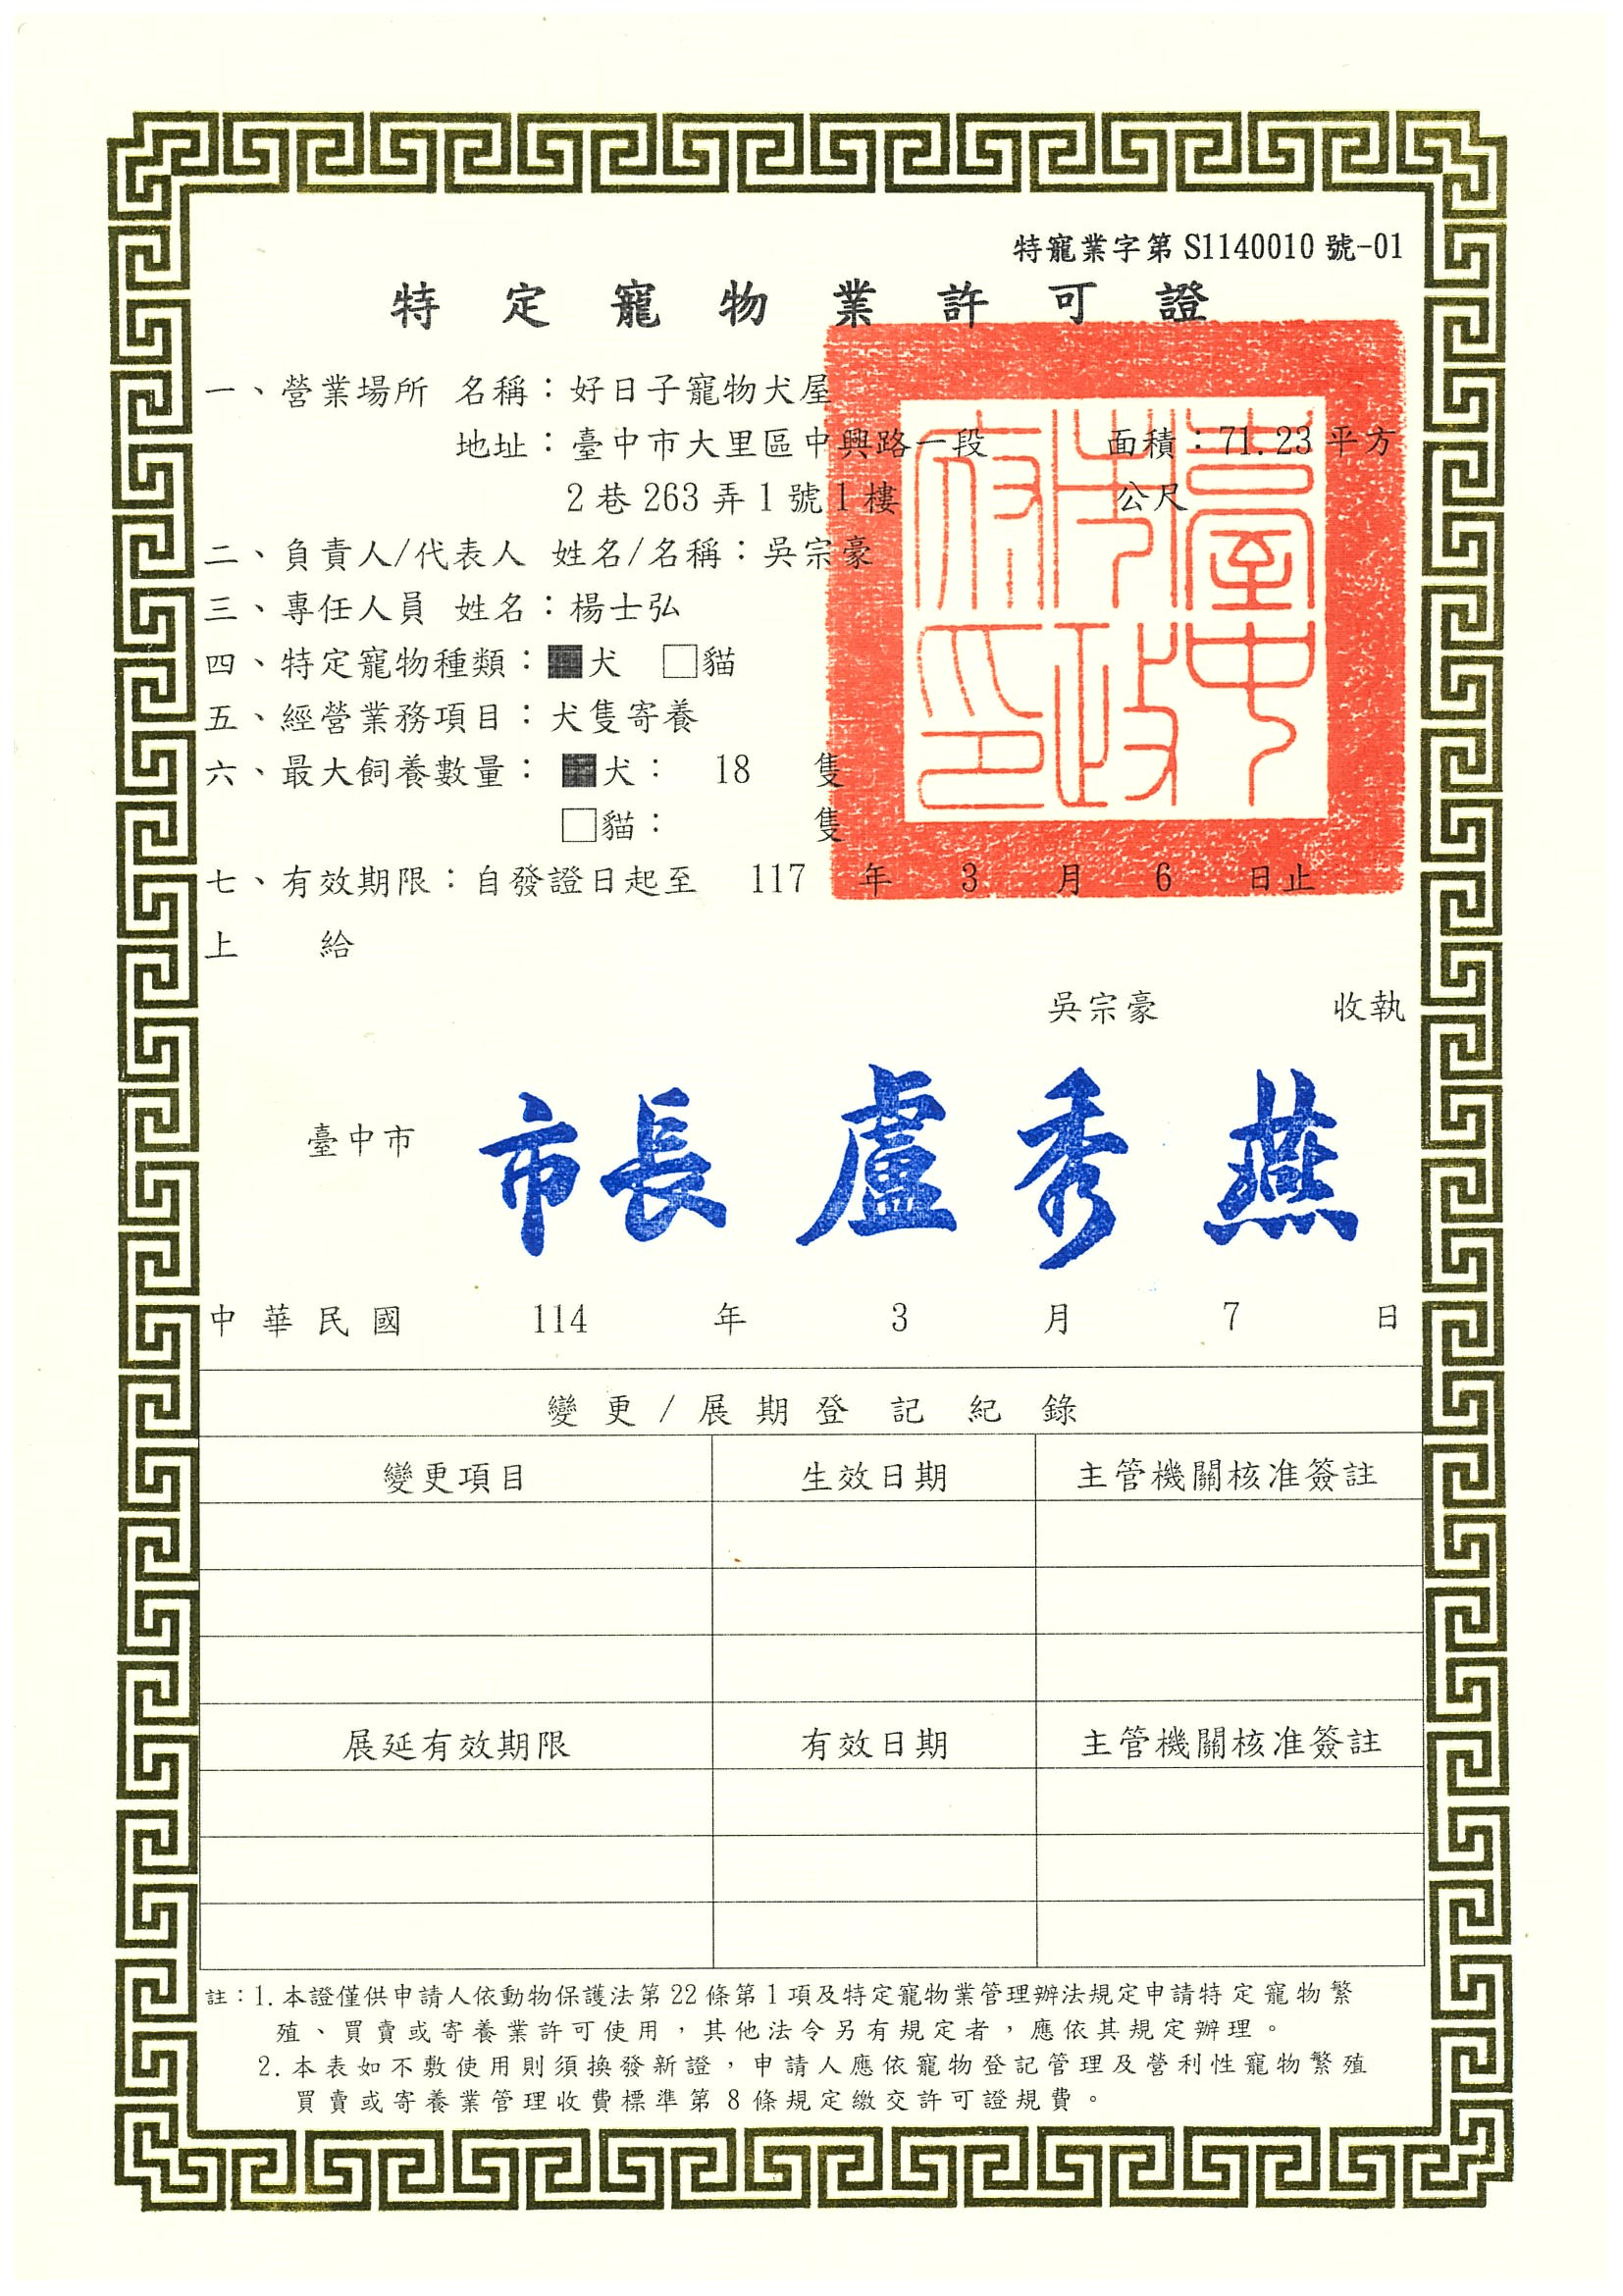 特寵業字第 S1140010 號-01
特定寵物業許可證
一、營業場所 名稱：好日子寵物犬屋
地址：臺中市大里區中興路一段 面積：71.23 平方
2 巷 263 弄 1 號 1 樓 公尺
二、負責人/代表人 姓名/名稱：吳宗豪
三、專任人員 姓名：楊士弘
四、特定寵物種類：■犬 □貓
五、經營業務項目：犬隻寄養
六、最大飼養數量：■犬： 18 隻
□貓： 隻
七、有效期限：自發證日起至 117 年 3 月 6 日止
上 給
吳宗豪 收執
臺中市 市長 盧秀燕
中華民國 114 年 3 月 7 日
變更/展期登記紀錄
變更項目 生效日期 主管機關核准簽註
展延有效期限 有效日期 主管機關核准簽註
註：1. 本證僅供申請人依動物保護法第 22 條第 1 項及特定寵物業管理辦法規定申請特定寵物繁
殖、買賣或寄養業許可使用，其他法令另有規定者，應依其規定辦理。
2. 本表如不敷使用則須換發新證，申請人應依寵物登記管理及營利性寵物繁殖
買賣或寄養業管理收費標準第 8 條規定繳交許可證規費。
臺中市政府印